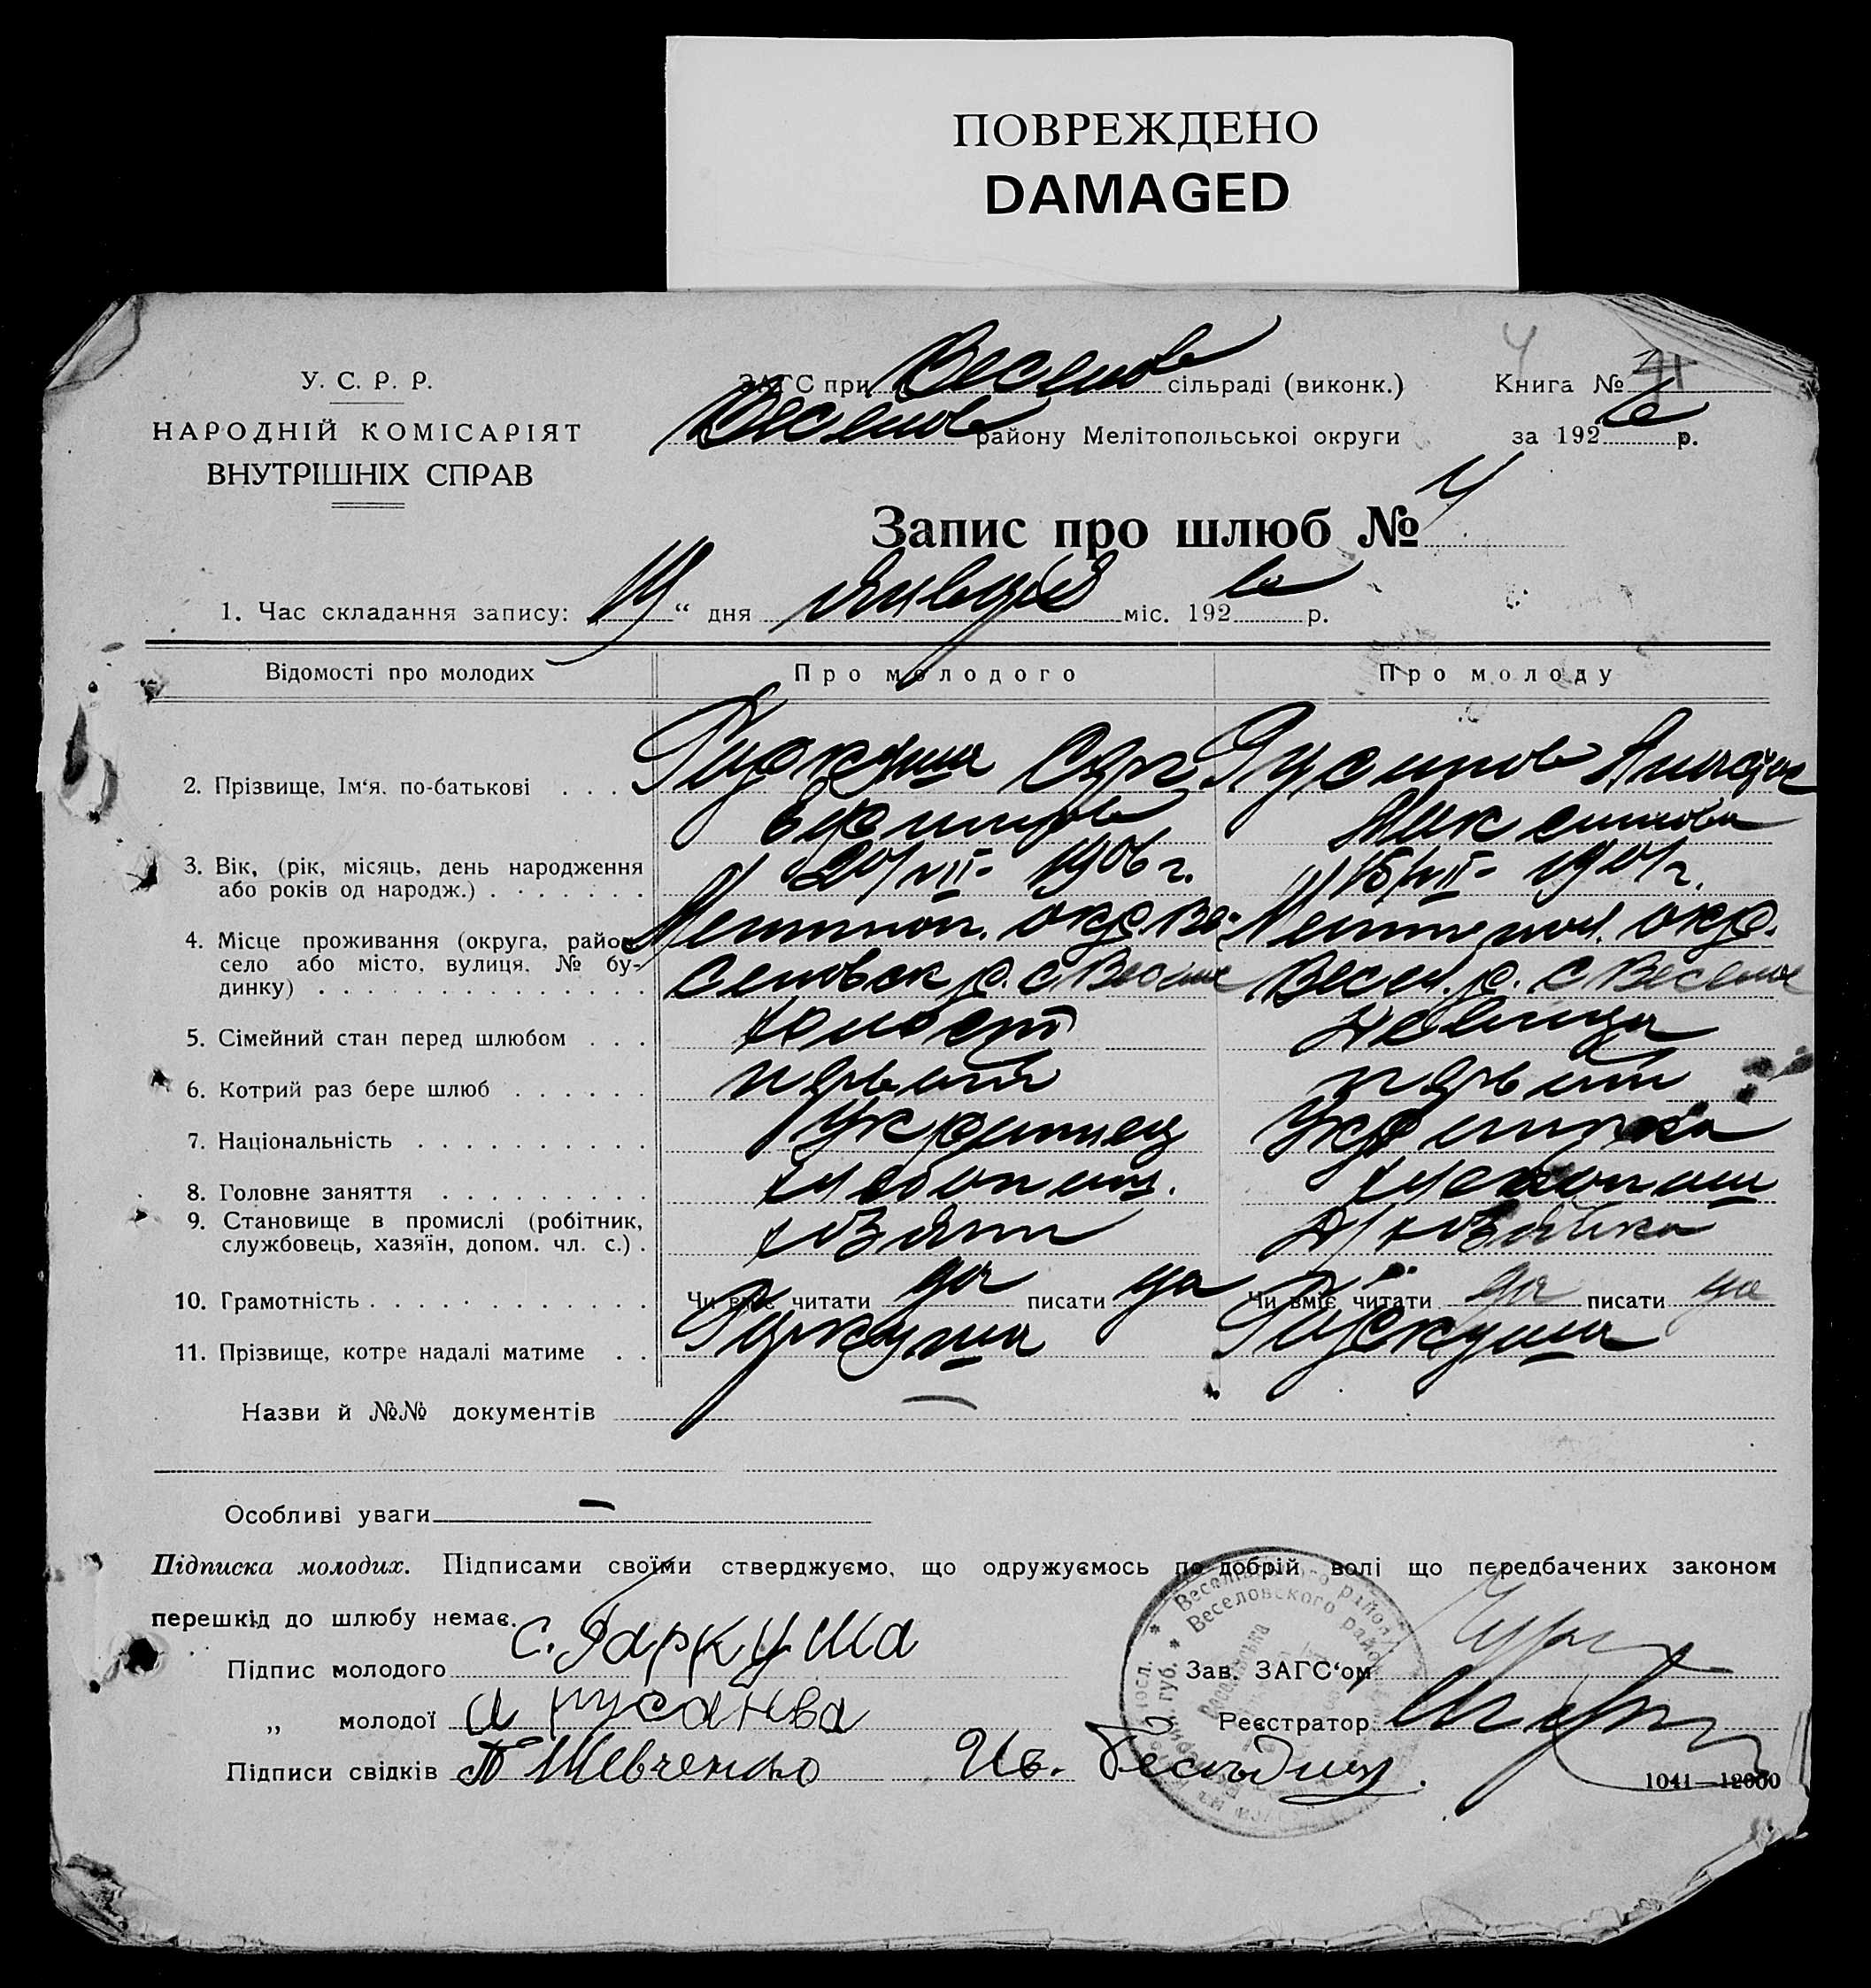 ПОВРЕЖДЕНО
DAMAGED
У. С. Р. Р.
НАРОДНІЙ КОМІСАРІЯТ
ВНУТРІШНІХ СПРАВ
ЗАГС при Веселов сільраді (виконк.) Книга №
Веселов району Мелітопольськоі округи за 1926 р.
4
Запис про шлюб № 4
1. Час складання запису: " дня января міс. 1926 р.
Відомості про молодих Про молодого Про молоду
2. Прізвище, Ім'я. по-батькові . . . Гаркуша Серг Русанова Анастас
3. Вік, (рік, місяць, день народження
або років од народж.) . . . . . . . 1906 г.
4. Місце проживання (округа, район, Мелитоп. окр. Ве- Мелитопол. окр.
село або місто, вулиця, № бу- селовск р. с Веселое Весел. р. с Веселое
динку) . . . . . . . . . . . . . .
5. Сімейний стан перед шлюбом . . . холост девица
6. Котрий раз бере шлюб . . . . . . первый первый
7. Національність . . . . . . . . . . Украинец Украинка
8. Головне заняття . . . . . . . . . хлебопаш. хлебопаш
9. Становище в промислі (робітник,
службовець, хазяїн, допом. чл. с.) . хозяин д/хозяйка
10. Грамотність . . . . . . . . . . . . Чи вміє читати да писати да Чи вміє читати да писати да
11. Прізвище, котре надалі матиме . . Гаркуша Гаркуша
Назви й №№ документів —
Особливі уваги —
Підписка молодих. Підписами своїми стверджуємо, що одружуємось по добрій волі що передбачених законом
перешкід до шлюбу немає.
Підпис молодого С. Гаркуша Зав. ЗАГС'ом
„ молодої А русанва Реєстратор
Підписи свідків Шевченко Ив.
1041—12000
Веселовского района